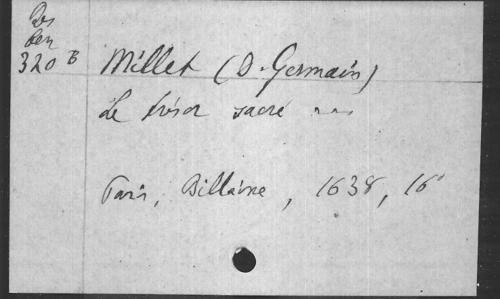 Res
320 B
Millet (D. Germain)
Le trésor sacré ...
Paris, Billaine, 1638, 16°